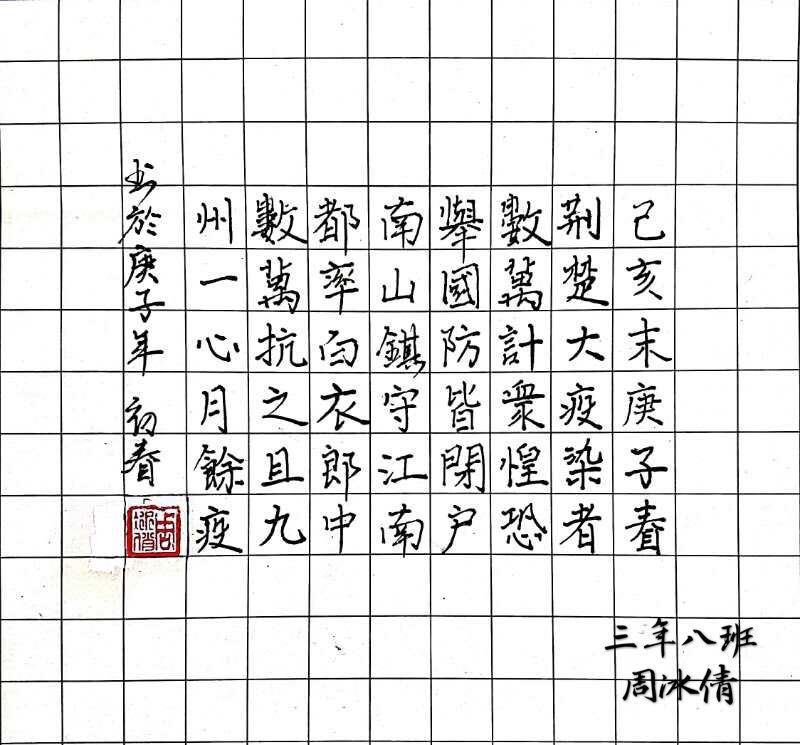 己亥末庚子春
荆楚大疫染者
數萬計衆惶恐
舉國防皆閉户
南山鎮守江南
都率白衣郎中
數萬抗之且九
州一心月餘疫
书於庚子年初春
周冰倩
三年八班
周冰倩